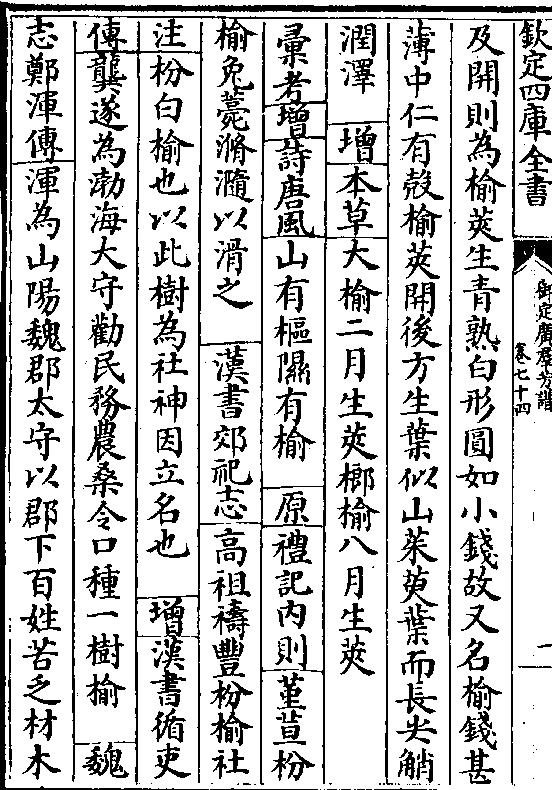 欽定四庫全書
御定廣羣芳譜
卷七十四
一
及開則為榆莢生青熟白形圓如小錢故又名榆錢甚
薄中仁有殼榆莢開後方生葉似山茱萸葉而長尖䚡
潤澤 增本草大榆二月生莢榔榆八月生莢
彚考增詩唐風山有樞隰有榆 原禮記内則菫荁枌
榆兔薧滫瀡以滑之 漢書郊祀志高祖禱豐枌榆社
注枌白榆也以此樹為社神因立名也 增漢書循吏
傳龔遂為渤海大守勸民務農桑令口種一樹榆 魏
志鄭渾傳渾為山陽魏郡太守以郡下百姓苦乏材木